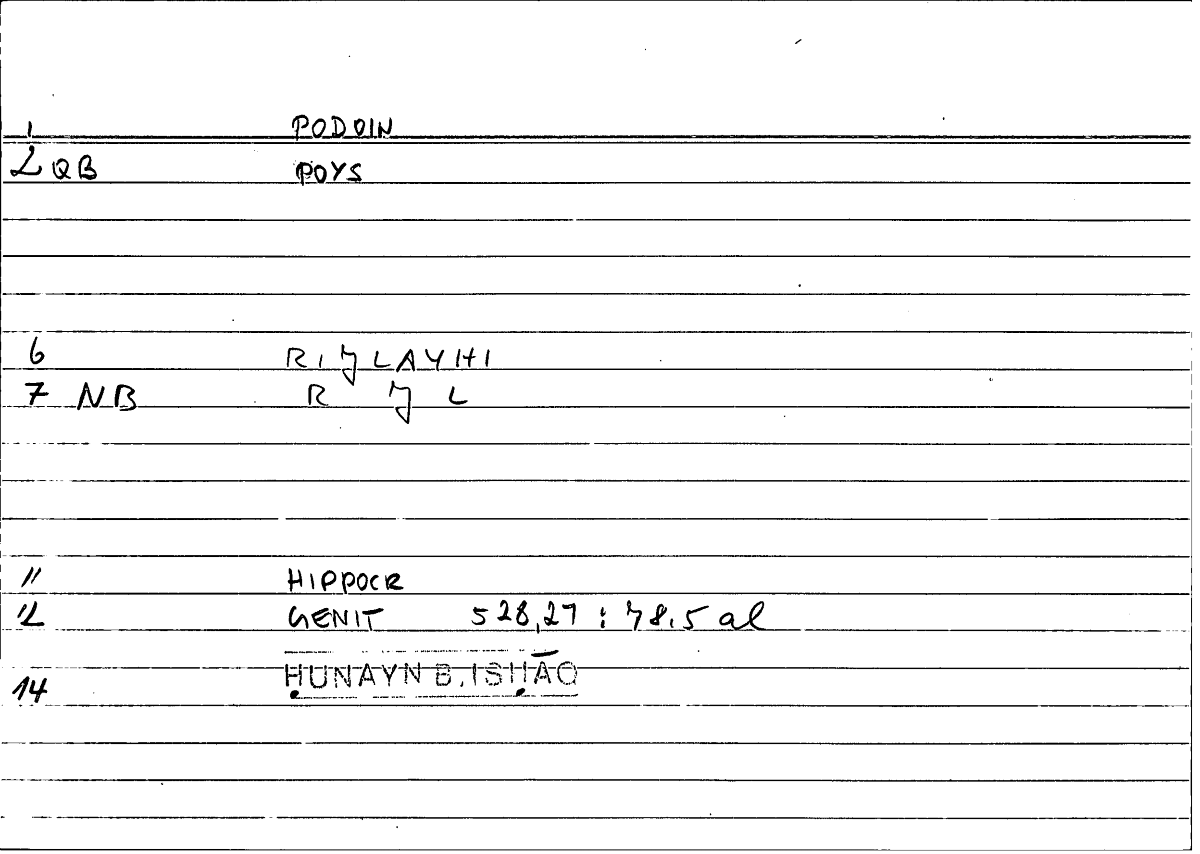 1 PODOIN
2 QB POYS
6 RIJLAYHI
7 NB R J L
11 HIPPOCR
12 GENIT 528,27 : 78.5 al
14 ḤUNAYN B. ISḤĀQ